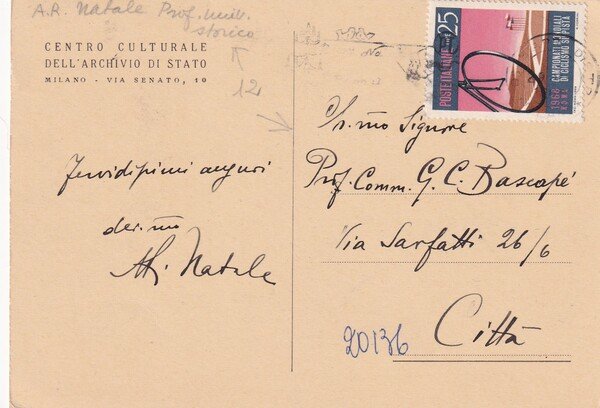 A.R. Natale Prof. mill.
storico
CENTRO CULTURALE
DELL'ARCHIVIO DI STATO
MILANO - VIA SENATO, 10
12
Fervidissimi auguri
dev.mo
A.R. Natale
POSTE ITALIANE
L. 25
1968
ROMA
CAMPIONATI MONDIALI
DI CICLISMO SU PISTA
Ill.mo Signore
Prof. Comm. G. C. Bascapè
Via Sarfatti 26/6
Città
20136